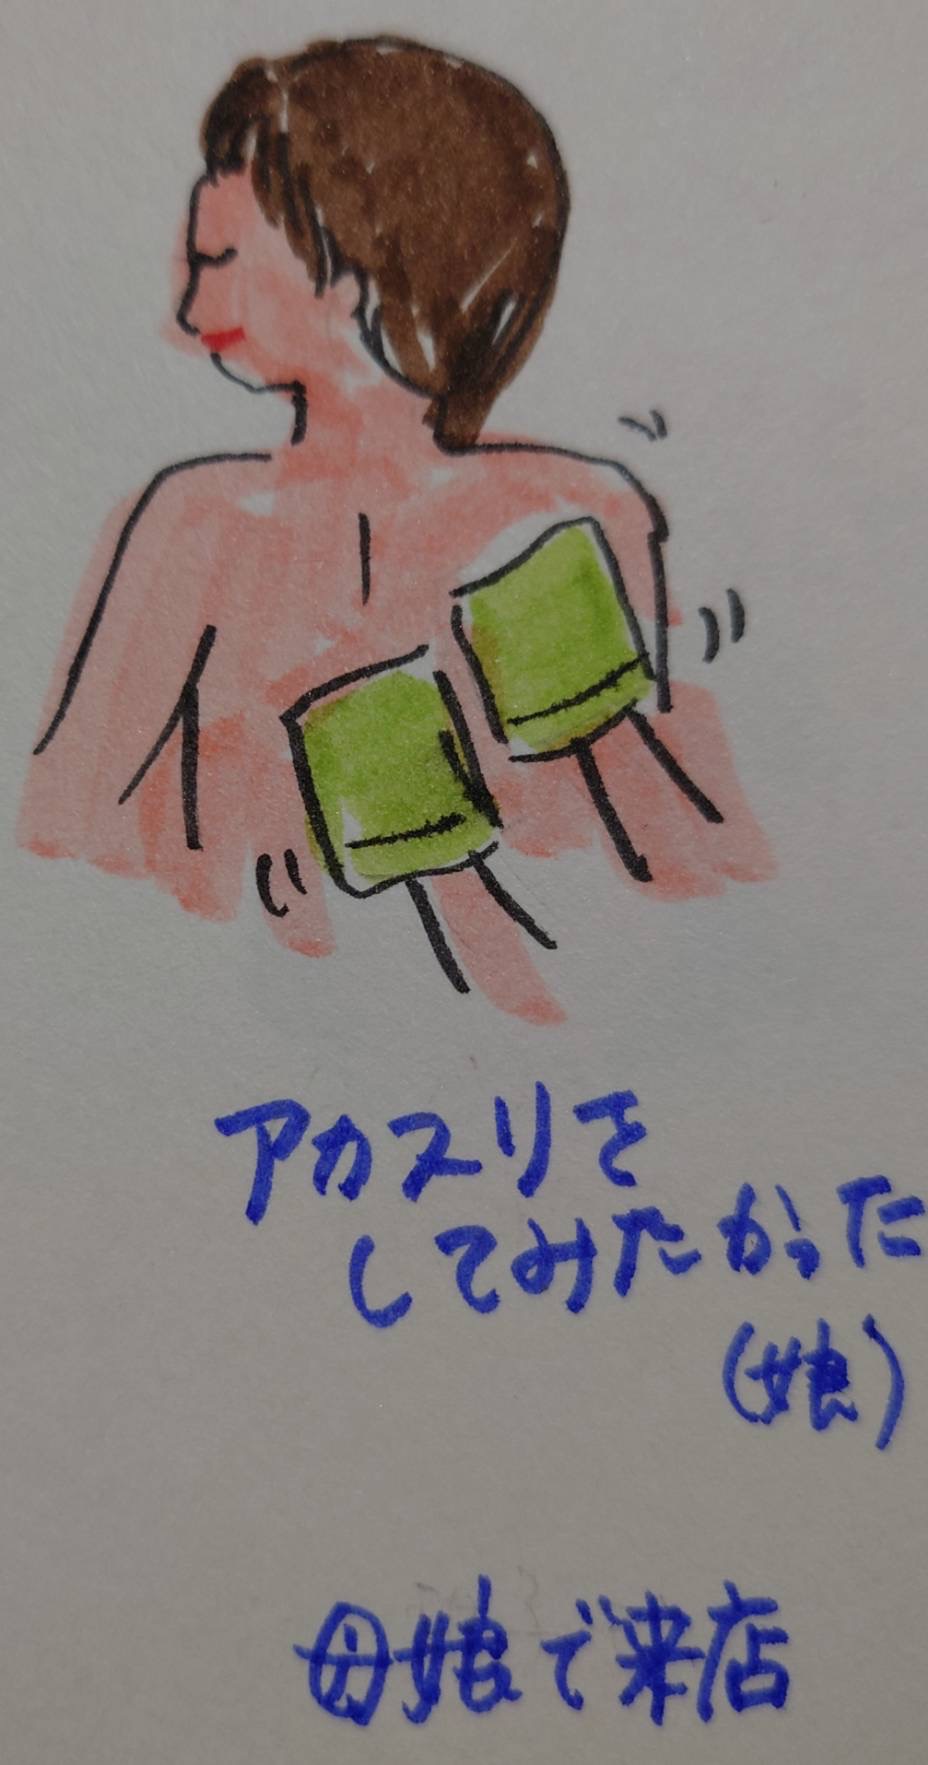 アカスリを
してみたかった
(娘)
母娘で来店